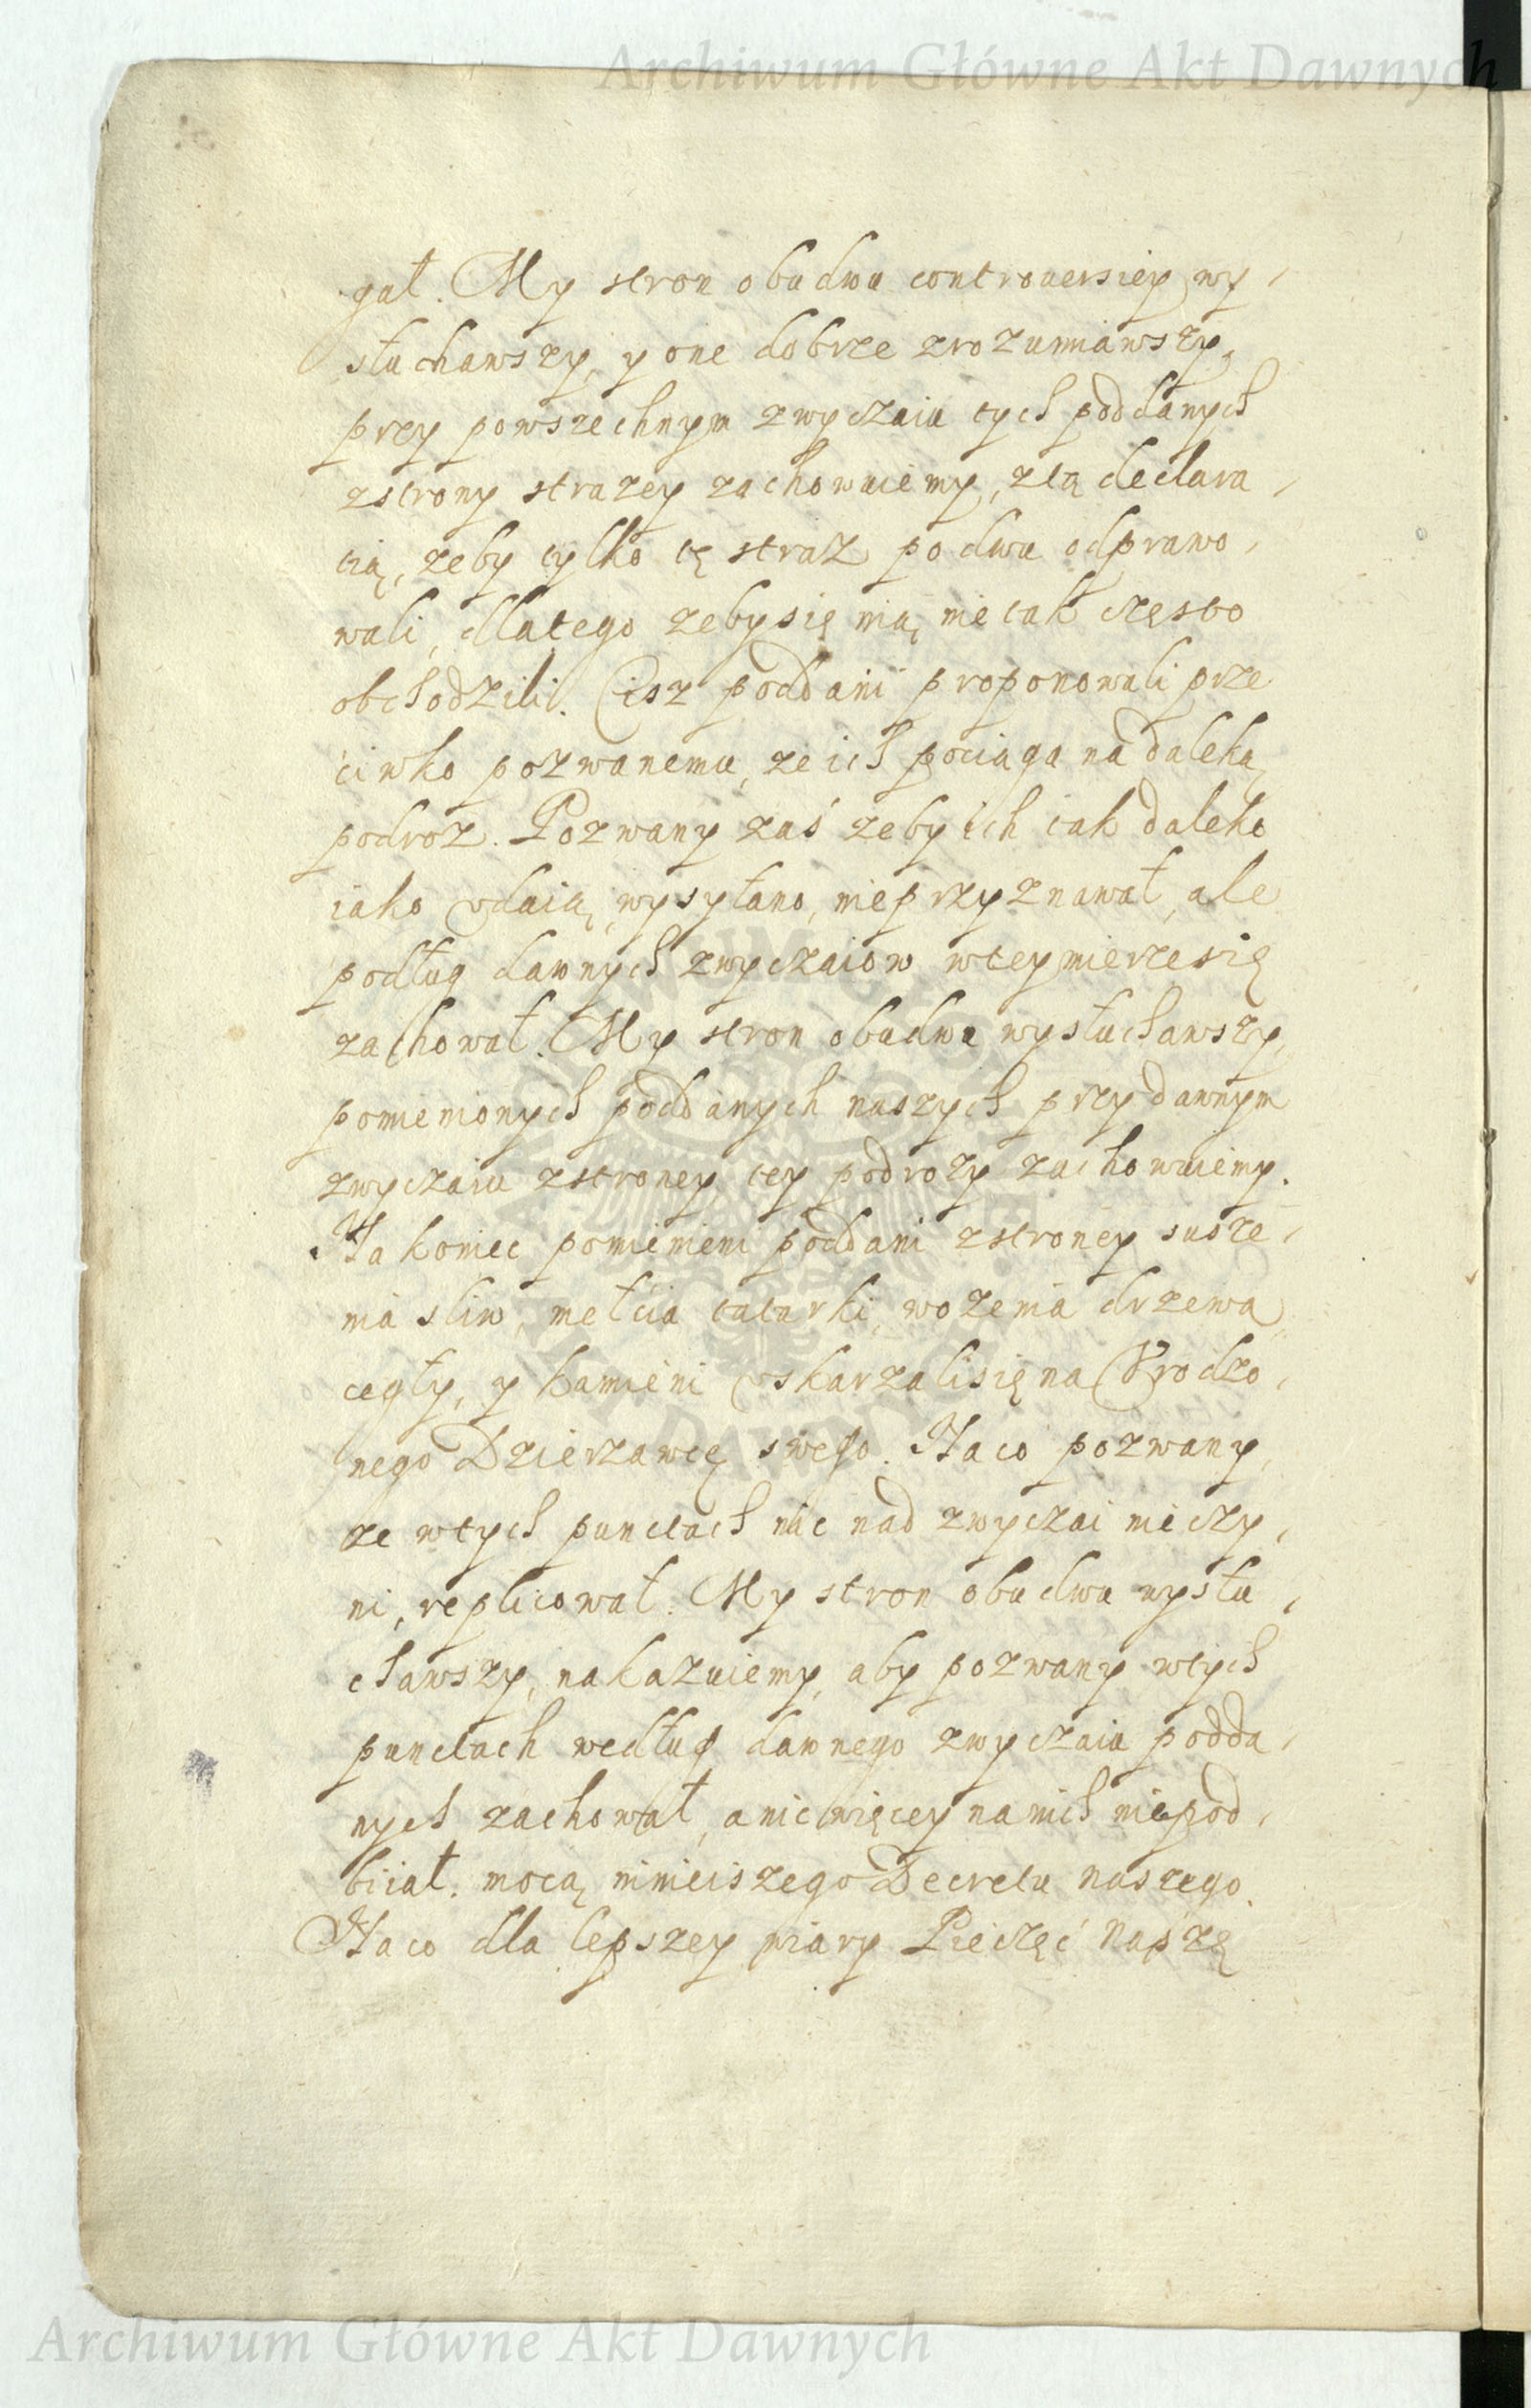 Archiwum Główne Akt Dawnych
gał. My stron obudwu controuersiey wy,
słuchawszy, y one dobrze zrozumiawszy,
przy powszechnym zwyczaiu tych poddanych
zstrony strazey zachowuiemy, ztą declara,
tią, zeby tylko tę straz po dwu odprawo,
wali, dlatego zebysię nią nie tak często
obchodzili. Cisz poddani proponowali prze
ciwko pozwanemu, ze ich pociąga na daleką
podroz. Pozwany zaś zeby ich tak daleko
iako vdaią, wysyłano, nieprzyznawał, ale
podług dawnych zwyczaiow wtey mierzesię
zachował. My stron obudwu wysłuchawszy,
pomienionych poddanych naszych przy dawnym
zwyczaiu zstroney tey podrozy zachowuiemy.
Na koniec pomienieni poddani zstroney susze,
nia sliw, mełcia tatarki, wozenia drzewa
cegły, y kamieni vskarzalisię na Vrodzo,
nego Dzierzawcę swego. Naco pozwany,
ze wtych punctach nic nad zwyczai nie czy,
ni, replicował. My stron obudwu wysłu,
chawszy, nakazuiemy, aby pozwany wtych
punctach według dawnego zwyczaiu podda,
nych zachował, a nic więcey na nich niepod,
biiał. mocą ninieiszego Decretu naszego.
Naco dla lepszey wiary Pieczęć naszę
ARCHIWUM GŁÓWNE AKT DAWNYCH
Archiwum Główne Akt Dawnych